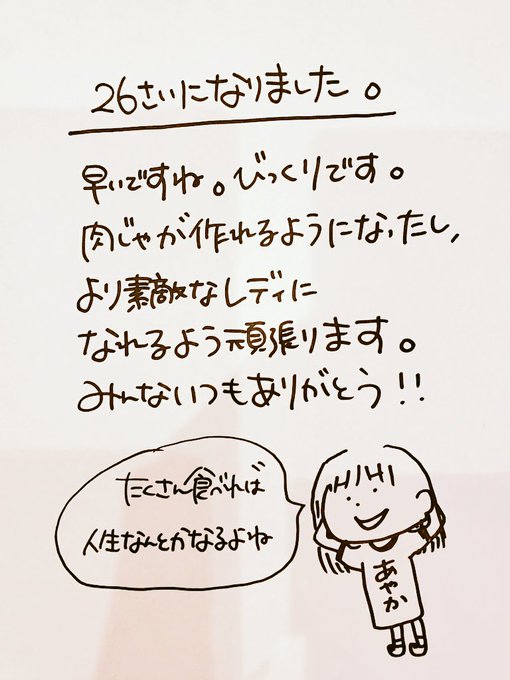 26さいになりました。
早いですね。びっくりです。
肉じゃが作れるようになったし,
より素敵なレディに
なれるよう頑張ります。
みんないつもありがとう!!
たくさん食べれば
人生なんとかなるよね
あやか